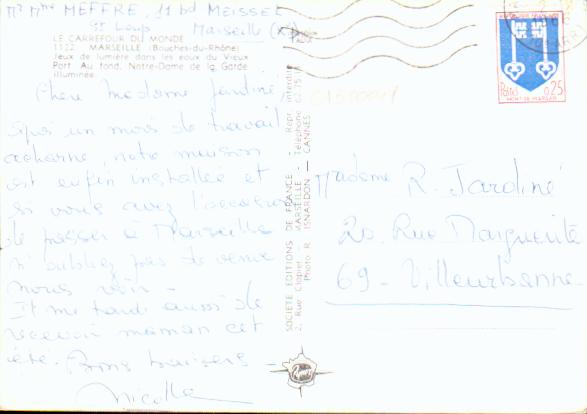 Mr Mme MEFFRE, 11 bd MEISSEL
St Loup Marseille (Xe)
LE CARREFOUR DU MONDE
1122 MARSEILLE (Bouches-du-Rhône)
Jeux de lumière dans les eaux du Vieux
Port Au fond, Notre-Dame de la Garde
illuminée
Chère Madame Jardiné
après un mois de travail
acharné, notre maison
est enfin installée et
si vous avez l'occasion
de passer à Marseille
n'oubliez pas de venir
nous voir -
Il me tarde aussi de
recevoir maman cet
été. Bons baisers -
Nicolle
SOCIETE EDITIONS DE FRANCE - MARSEILLE - Repr. interdite
2, Rue Clapier - Téléphone 62.75.18
Photo R. ISNARDON — CANNES
Postes 0,25
MONT-DE-MARSAN
Madame R. Jardiné
20 Rue Marguerite
69 - Villeurbanne